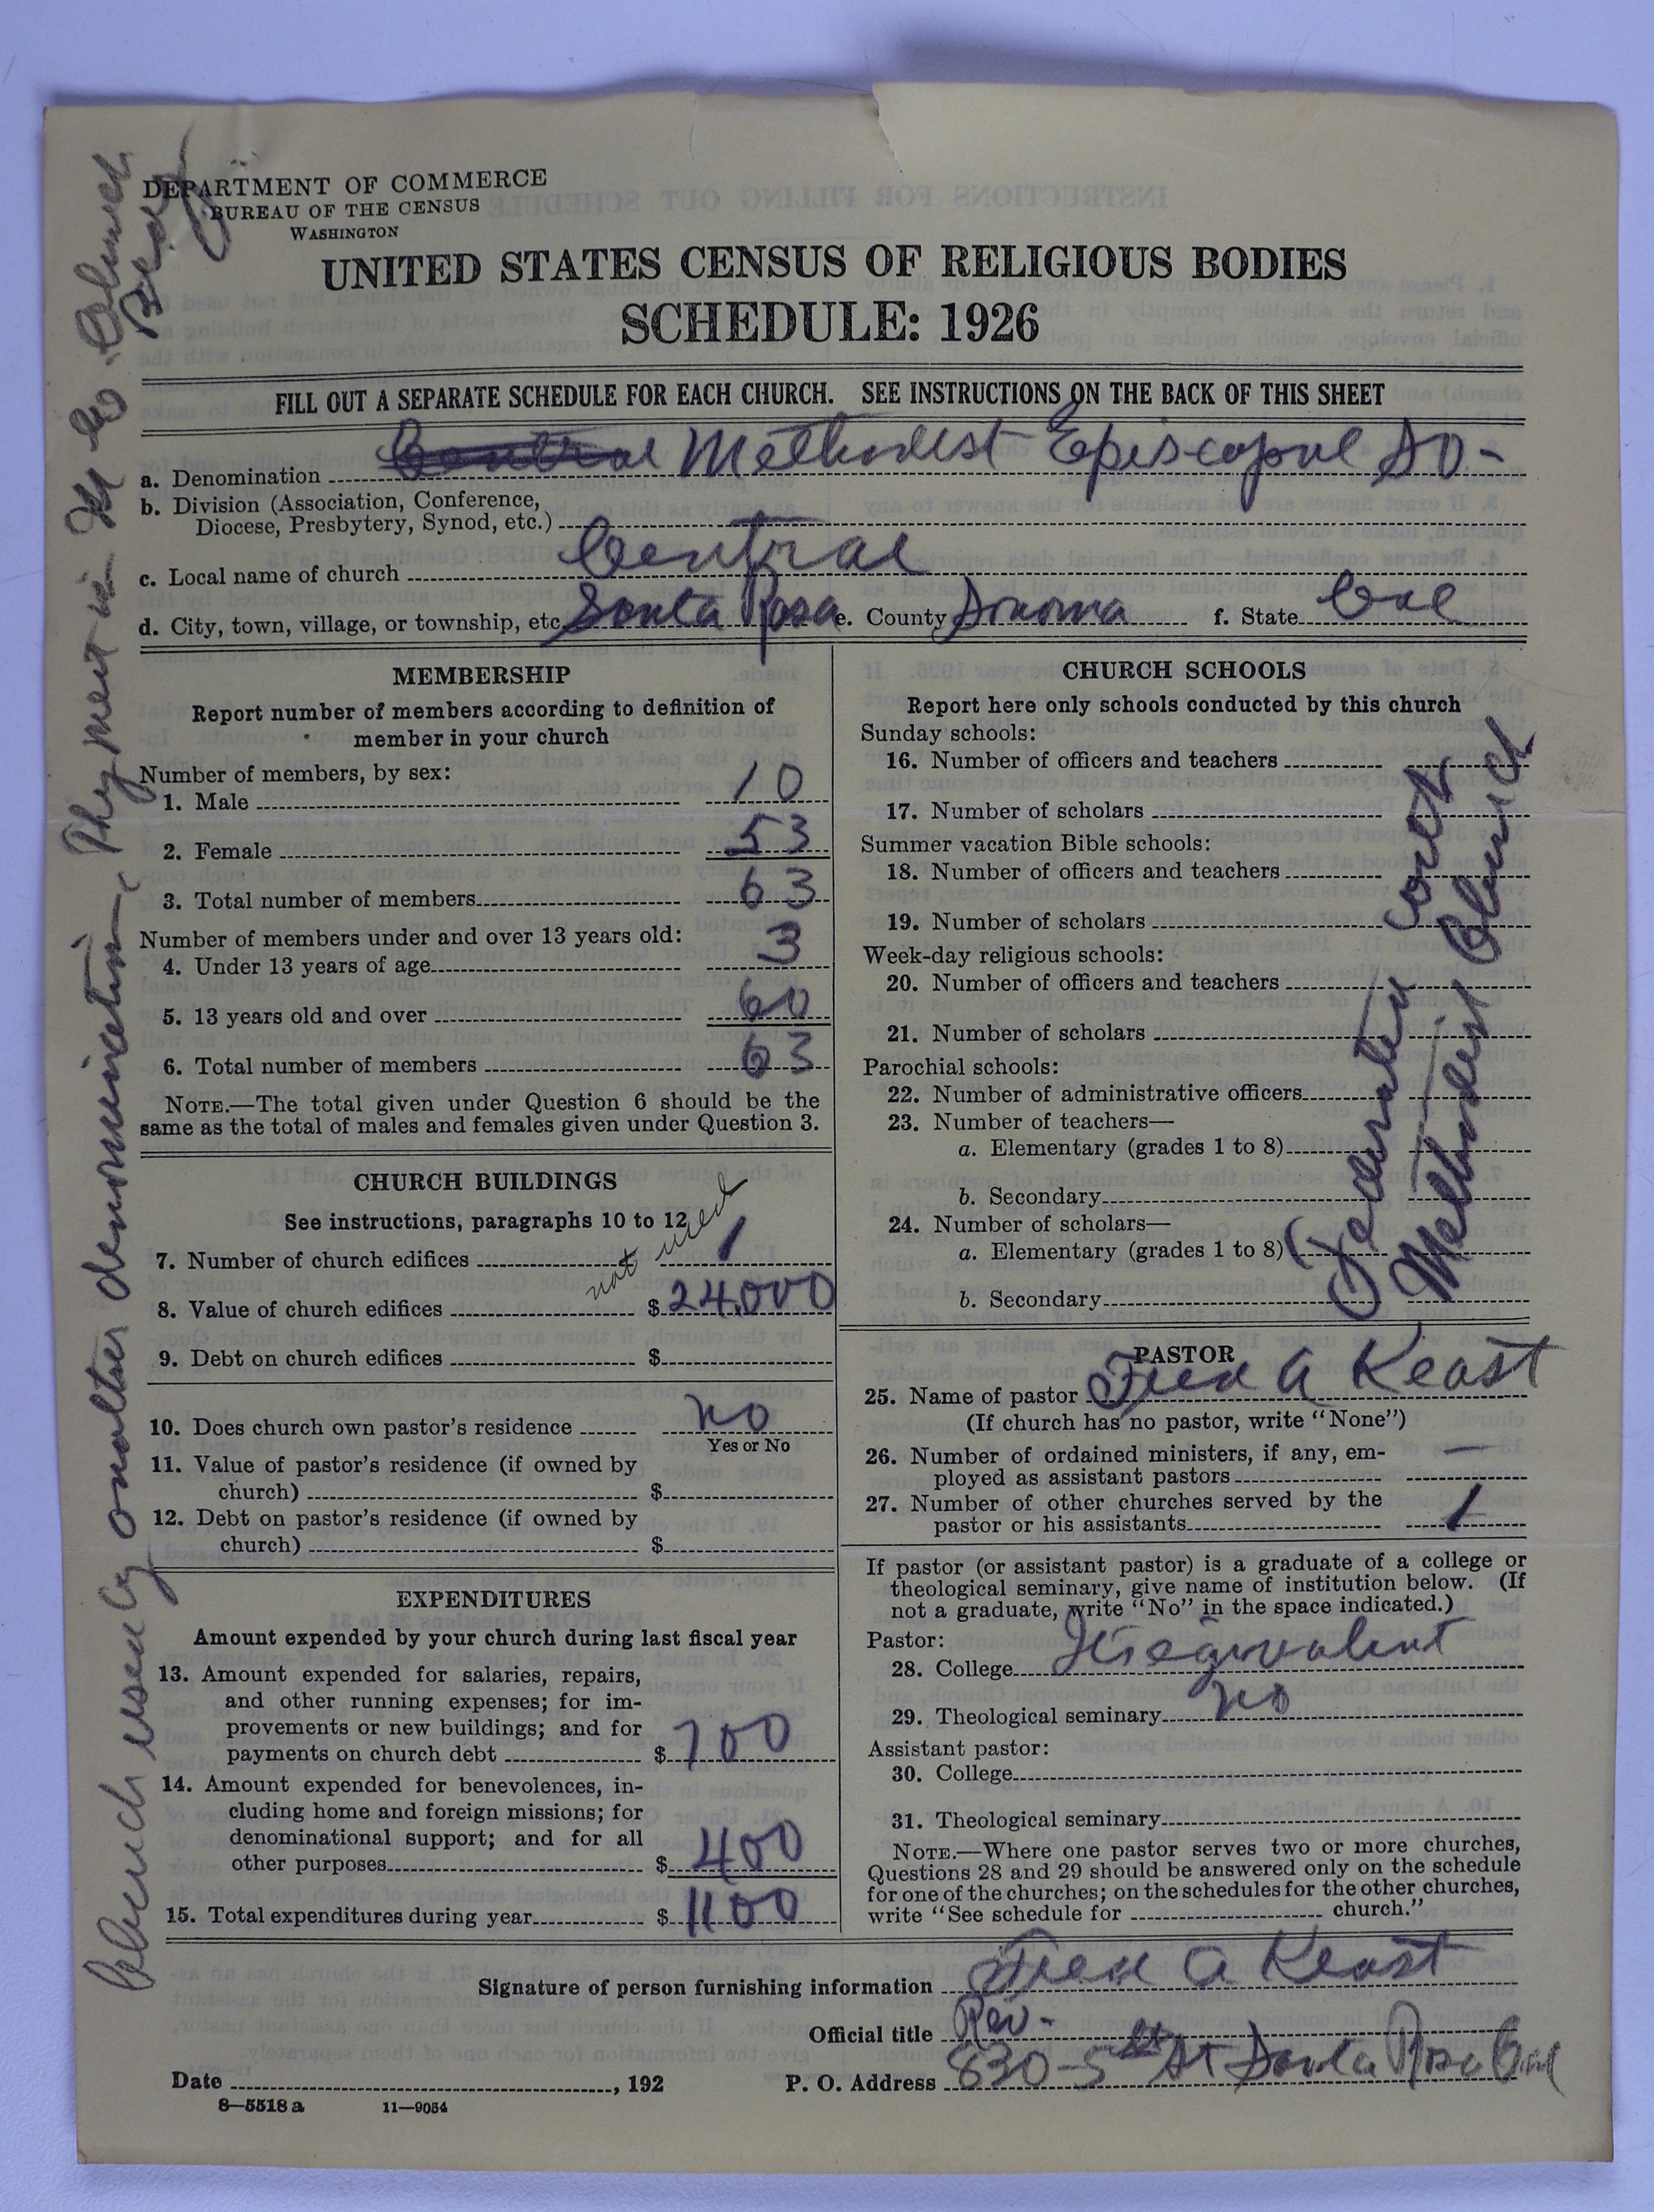 DEPARTMENT OF COMMERCE
BUREAU OF THE CENSUS
WASHINGTON
UNITED STATES CENSUS OF RELIGIOUS BODIES
SCHEDULE: 1926
FILL OUT A SEPARATE SCHEDULE FOR EACH CHURCH. SEE INSTRUCTIONS ON THE BACK OF THIS SHEET
a. Denomination Central Methodist Episcopal So-
b. Division (Association, Conference,
Diocese, Presbytery, Synod, etc.)
c. Local name of church Central
d. City, town, village, or township, etc. Santa Rosa e. County Sonoma f. State Cal
MEMBERSHIP
Report number of members according to definition of
member in your church
Number of members, by sex:
1. Male 10
2. Female 53
3. Total number of members 63
Number of members under and over 13 years old:
4. Under 13 years of age 3
5. 13 years old and over 60
6. Total number of members 63
NOTE.—The total given under Question 6 should be the
same as the total of males and females given under Question 3.
CHURCH BUILDINGS
See instructions, paragraphs 10 to 12
7. Number of church edifices not used 1
8. Value of church edifices $24,000
9. Debt on church edifices $
10. Does church own pastor's residence No
Yes or No
11. Value of pastor's residence (if owned by
church) $
12. Debt on pastor's residence (if owned by
church) $
EXPENDITURES
Amount expended by your church during last fiscal year
13. Amount expended for salaries, repairs,
and other running expenses; for im-
provements or new buildings; and for
payments on church debt $700
14. Amount expended for benevolences, in-
cluding home and foreign missions; for
denominational support; and for all
other purposes $400
15. Total expenditures during year $1100
CHURCH SCHOOLS
Report here only schools conducted by this church
Sunday schools:
16. Number of officers and teachers
17. Number of scholars
Summer vacation Bible schools:
18. Number of officers and teachers
19. Number of scholars
Week-day religious schools:
20. Number of officers and teachers
21. Number of scholars
Parochial schools:
22. Number of administrative officers
23. Number of teachers—
a. Elementary (grades 1 to 8)
b. Secondary
24. Number of scholars—
a. Elementary (grades 1 to 8)
b. Secondary
Federated with
Methodist Church
PASTOR
25. Name of pastor Fred A Keast
(If church has no pastor, write "None")
26. Number of ordained ministers, if any, em-
ployed as assistant pastors —
27. Number of other churches served by the
pastor or his assistants 1
If pastor (or assistant pastor) is a graduate of a college or
theological seminary, give name of institution below. (If
not a graduate, write "No" in the space indicated.)
Pastor:
28. College Its equivalent
29. Theological seminary No
Assistant pastor:
30. College
31. Theological seminary
NOTE.—Where one pastor serves two or more churches,
Questions 28 and 29 should be answered only on the schedule
for one of the churches; on the schedules for the other churches,
write "See schedule for church."
Signature of person furnishing information Fred A Keast
Official title Rev.
Date , 192 P. O. Address 830-5th St Santa Rosa Cal
8—5518 a 11—9054
Church used by another denomination. They meet in M E Church